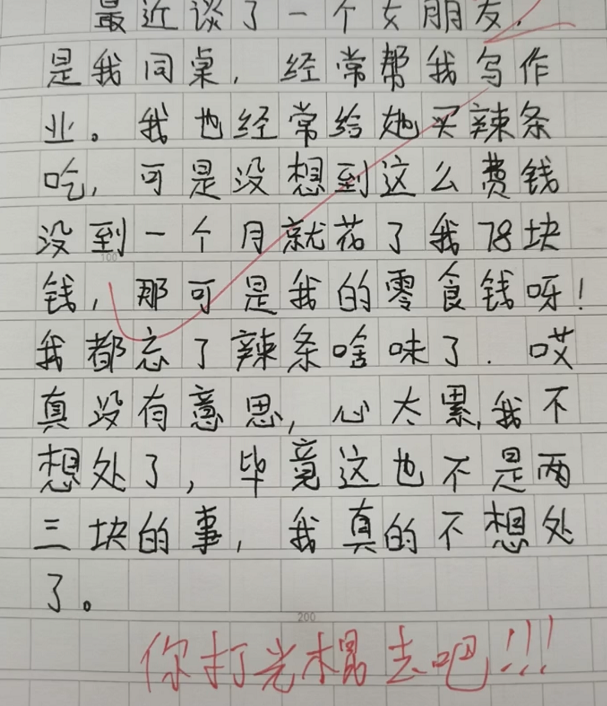 最近谈了一个女朋友,
是我同桌,经常帮我写作
业。我也经常给她买辣条
吃,可是没想到这么费钱
没到一个月就花了我78块
100
钱,那可是我的零食钱呀!
我都忘了辣条啥味了.哎
真没有意思,心太累,我不
想处了,毕竟这也不是两
三块的事,我真的不想处
了。
200
你打光棍去吧!!!